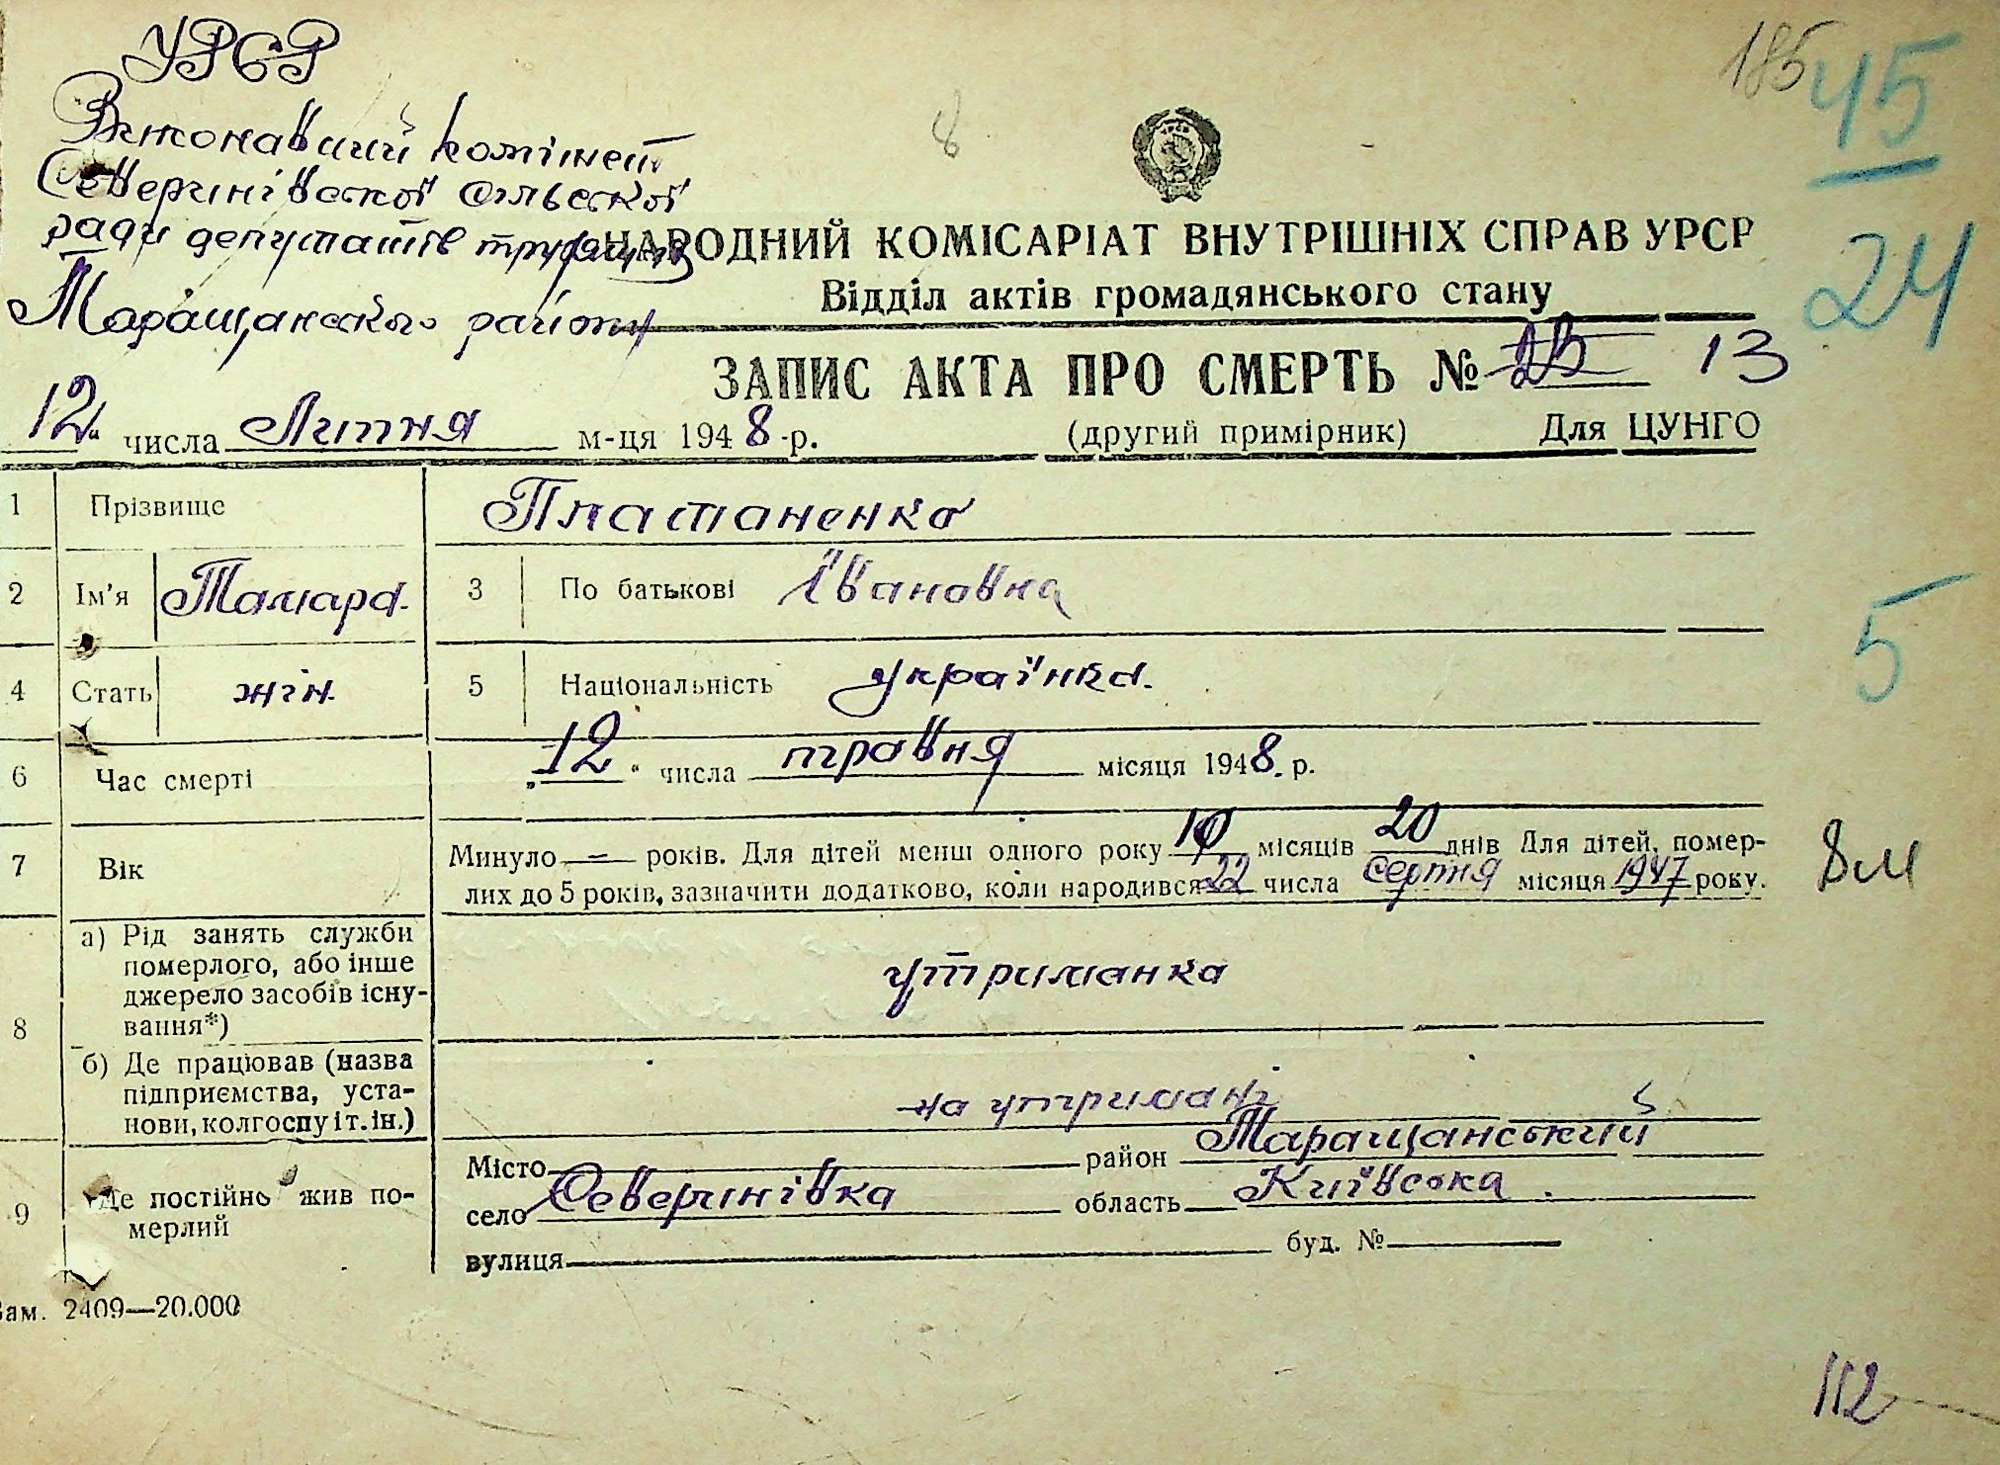 УРСР
185
45
Виконавчий комітет
8
Северинівської сільської
ради депутатів трудящих
24
НАРОДНИЙ КОМІСАРІАТ ВНУТРІШНІХ СПРАВ УРСР
Відділ актів громадянського стану
Таращанського району
ЗАПИС АКТА ПРО СМЕРТЬ № 13
12 " числа Липня м-ця 1948 -р. (другий примірник) Для ЦУНГО
1 Прізвище Платаненко
2 Ім'я Тамара. 3 По батькові Івановна
5
4 Стать жін. 5 Національність українка.
6 Час смерті „12 " числа травня місяця 1948. р.
7 Вік Минуло — років. Для дітей менш одного року місяців 20 днів Для дітей, помер-
лих до 5 років, зазначити додатково, коли народився 22 числа серпня місяця 1947 року.
8м
8 а) Рід занять служби
померлого, або інше
джерело засобів існу-
вання*)
утриманка
б) Де працював (назва
підприємства, уста-
нови, колгоспу і т. ін.)
на утримані
9 Де постійно жив по-
мерлий
Місто район Таращанський
село Северинівка область Київська.
вулиця буд. №
Зам. 2409—20.000
112